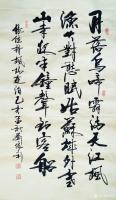 月落烏啼霜滿天江楓
漁火對愁眠姑蘇城外寒
山寺夜半鐘聲到客船
楓橋夜泊